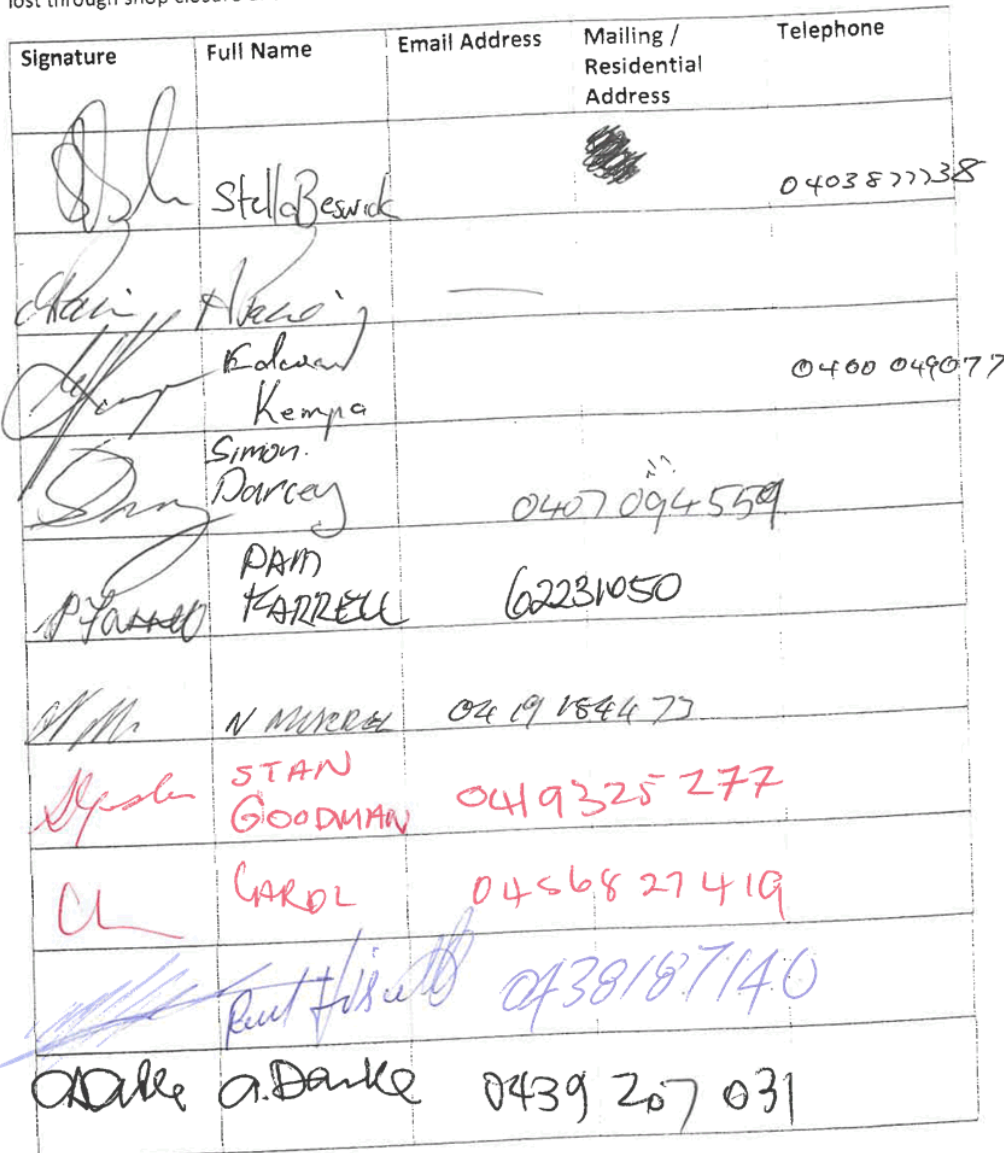 lost through shop closure
Signature Full Name Email Address Mailing / Residential Address Telephone
Stella Beswick 0403877738
Edward
Kempa 0400 049077
Simon.
Darcey 0407 094559
PAM
FARRELL 62231050
N 0419 184473
STAN
GOODMAN 0419325 277
CAROL 0456827419
0438187140
a.Darke 0439 207 031